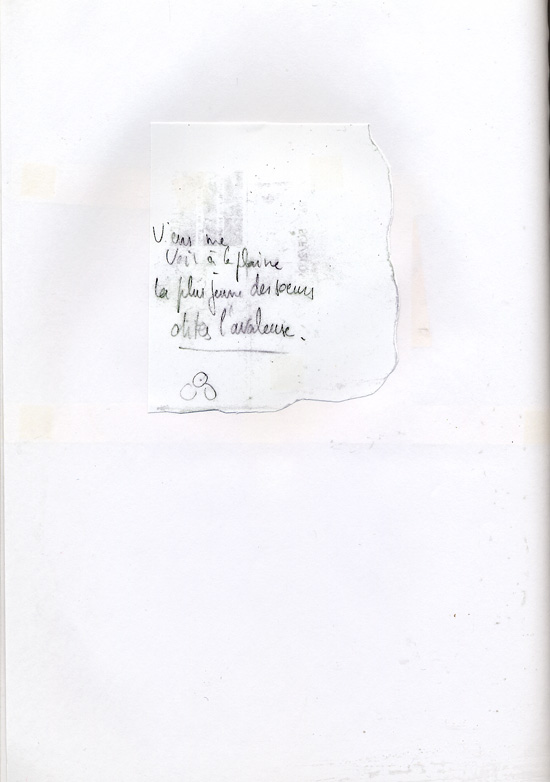 Viens me
voir à la plaine
la plus jeune des sœurs
dites l'avaleuse.